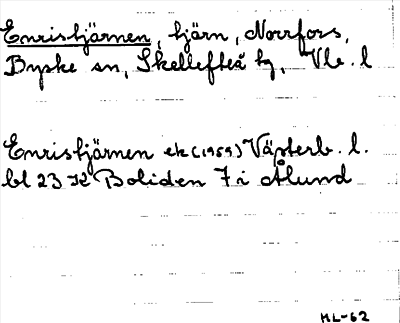 Enristjärnen, tjärn, Norrfors,
Byske sn, Skellefteå tg, Vb. l
Enristjärnen ek (1959) Västerb. l.
bl 23 K Boliden 7 i Ålund
ML-62